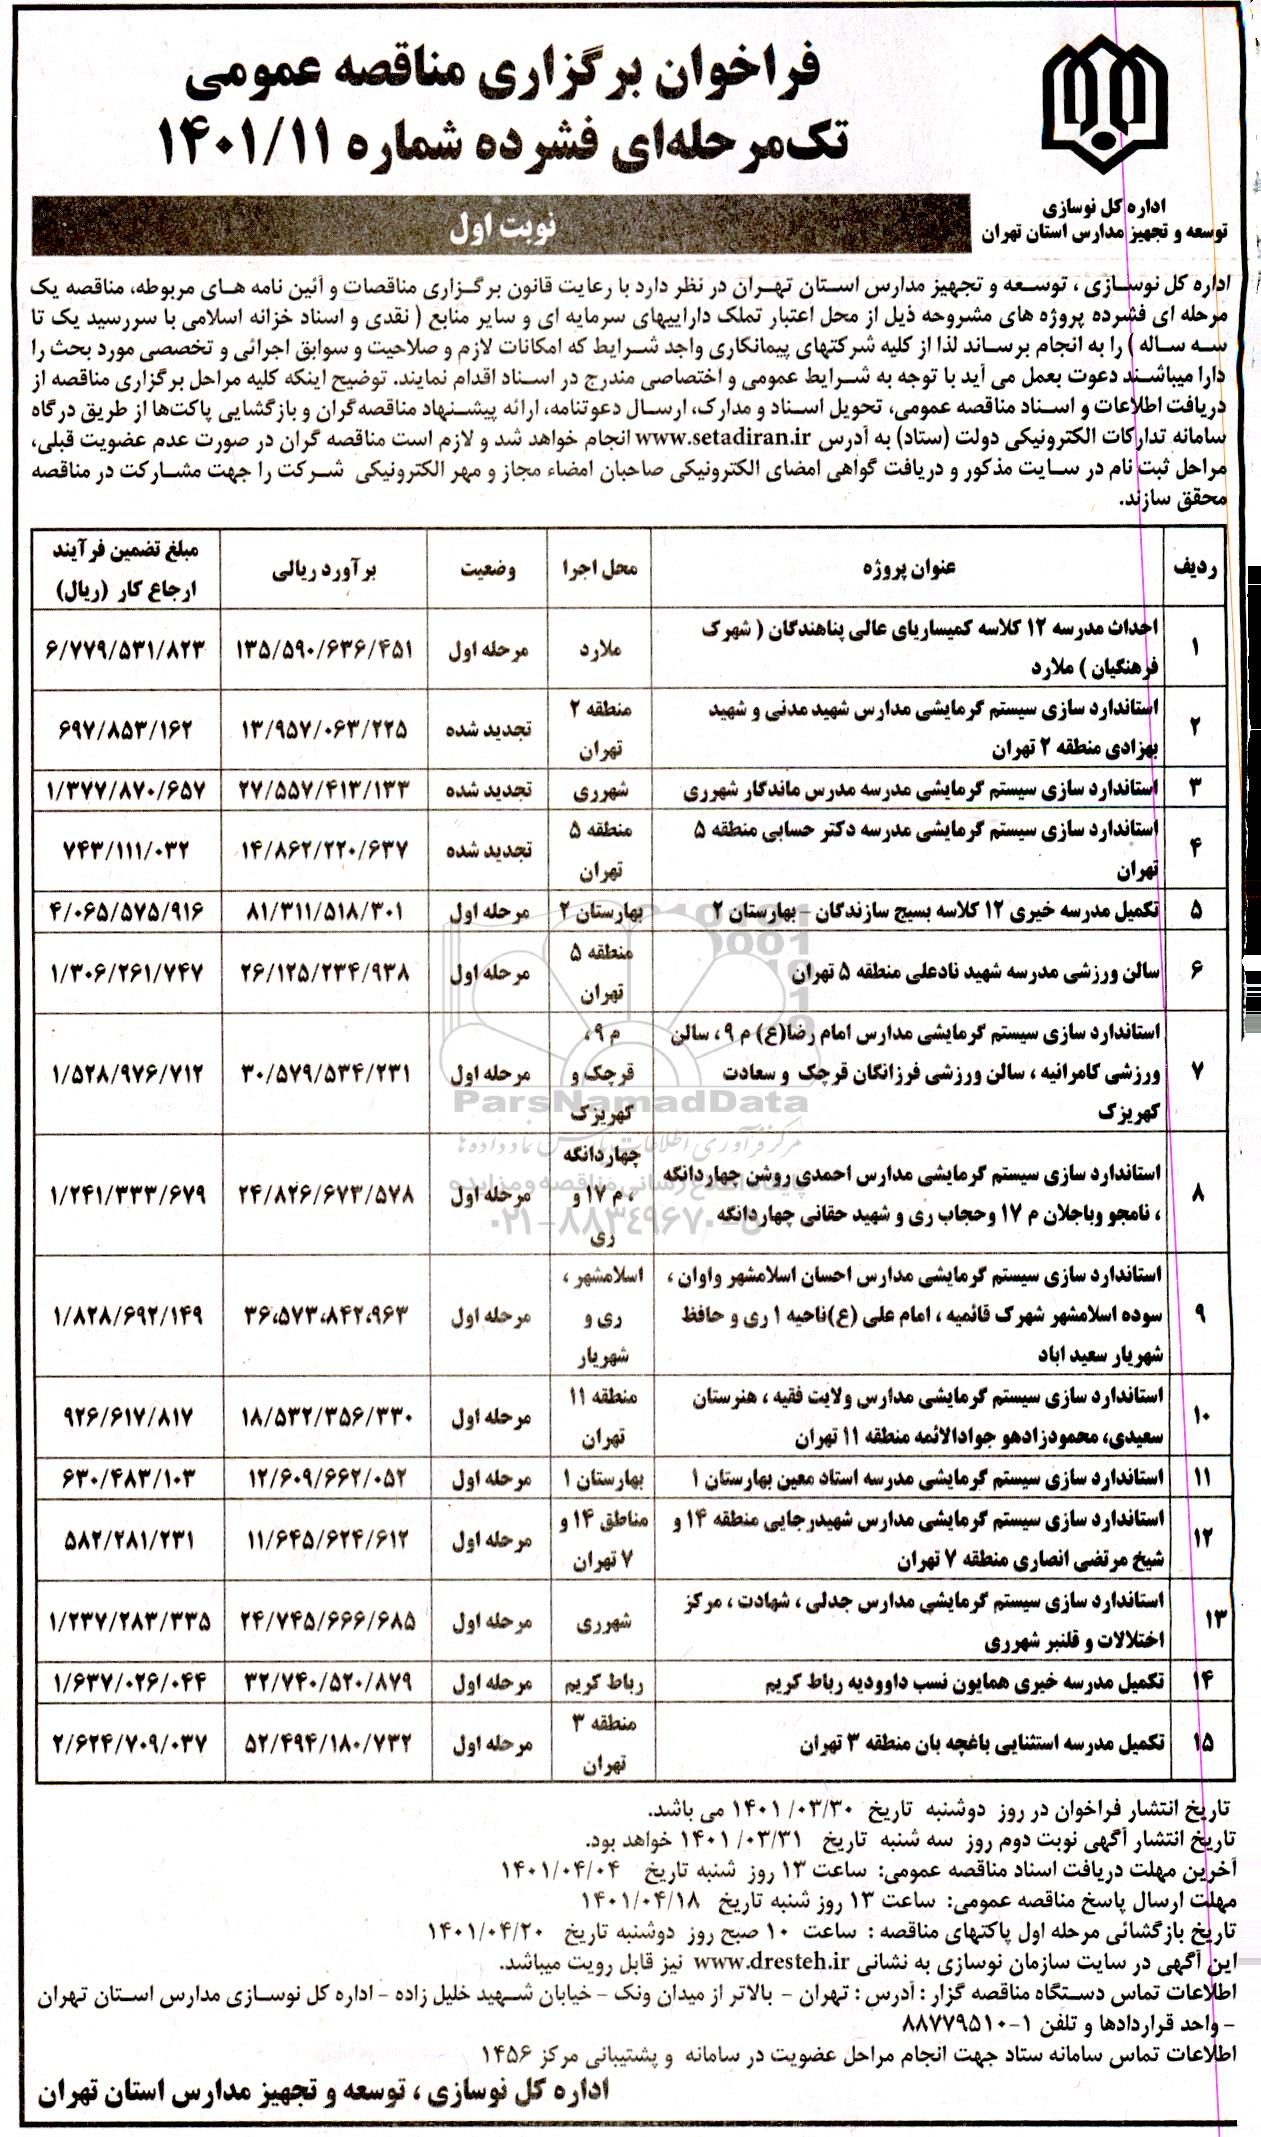 فراخوان برگزاری مناقصه عمومی
تک‌مرحله‌ای فشرده شماره ۱۴۰۱/۱۱
اداره کل نوسازی
توسعه و تجهیز مدارس استان تهران
نوبت اول
اداره کل نوسازی ، توسعه و تجهیز مدارس استان تهران در نظر دارد با رعایت قانون برگزاری مناقصات و آئین نامه های مربوطه، مناقصه یک
مرحله ای فشرده پروژه های مشروحه ذیل از محل اعتبار تملک داراییهای سرمایه ای و سایر منابع ( نقدی و اسناد خزانه اسلامی با سررسید یک تا
سه ساله ) را به انجام برساند لذا از کلیه شرکتهای پیمانکاری واجد شرایط که امکانات لازم و صلاحیت و سوابق اجرائی و تخصصی مورد بحث را
دارا میباشند دعوت بعمل می آید با توجه به شرایط عمومی و اختصاصی مندرج در اسناد اقدام نمایند. توضیح اینکه کلیه مراحل برگزاری مناقصه از
دریافت اطلاعات و اسناد مناقصه عمومی، تحویل اسناد و مدارک، ارسال دعوتنامه، ارائه پیشنهاد مناقصه‌گران و بازگشایی پاکت‌ها از طریق درگاه
سامانه تدارکات الکترونیکی دولت (ستاد) به آدرس www.setadiran.ir انجام خواهد شد و لازم است مناقصه گران در صورت عدم عضویت قبلی،
مراحل ثبت نام در سایت مذکور و دریافت گواهی امضای الکترونیکی صاحبان امضاء مجاز و مهر الکترونیکی شرکت را جهت مشارکت در مناقصه
محقق سازند.
ردیف عنوان پروژه محل اجرا وضعیت برآورد ریالی مبلغ تضمین فرآیند
ارجاع کار (ریال)
۱ احداث مدرسه ۱۲ کلاسه کمیساریای عالی پناهندگان ( شهرک
فرهنگیان ) ملارد ملارد مرحله اول ۱۳۵/۵۹۰/۶۳۶/۴۵۱ ۶/۷۷۹/۵۳۱/۸۲۳
۲ استاندارد سازی سیستم گرمایشی مدارس شهید مدنی و شهید
بهزادی منطقه ۲ تهران منطقه ۲
تهران تجدید شده ۱۳/۹۵۷/۰۶۳/۲۲۵ ۶۹۷/۸۵۳/۱۶۲
۳ استاندارد سازی سیستم گرمایشی مدرسه مدرس ماندگار شهرری شهرری تجدید شده ۲۷/۵۵۷/۴۱۳/۱۳۳ ۱/۳۷۷/۸۷۰/۶۵۷
۴ استاندارد سازی سیستم گرمایشی مدرسه دکتر حسابی منطقه ۵
تهران منطقه ۵
تهران تجدید شده ۱۴/۸۶۲/۲۲۰/۶۳۷ ۷۴۳/۱۱۱/۰۳۲
۵ تکمیل مدرسه خیری ۱۲ کلاسه بسیج سازندگان – بهارستان ۲ بهارستان ۲ مرحله اول ۸۱/۳۱۱/۵۱۸/۳۰۱ ۴/۰۶۵/۵۷۵/۹۱۶
۶ سالن ورزشی مدرسه شهید نادعلی منطقه ۵ تهران منطقه ۵
تهران مرحله اول ۲۶/۱۲۵/۲۳۴/۹۳۸ ۱/۳۰۶/۲۶۱/۷۴۷
۷ استاندارد سازی سیستم گرمایشی مدارس امام رضا(ع) م ۹ ، سالن
ورزشی کامرانیه ، سالن ورزشی فرزانگان قرچک و سعادت
کهریزک م ۹ ،
قرچک و
کهریزک مرحله اول ۳۰/۵۷۹/۵۳۴/۲۳۱ ۱/۵۲۸/۹۷۶/۷۱۲
۸ استاندارد سازی سیستم گرمایشی مدارس احمدی روشن چهاردانگه
، نامجو وباجلان م ۱۷ وحجاب ری و شهید حقانی چهاردانگه چهاردانگه
، م ۱۷ و
ری مرحله اول ۲۴/۸۲۶/۶۷۳/۵۷۸ ۱/۲۴۱/۳۳۳/۶۷۹
۹ استاندارد سازی سیستم گرمایشی مدارس احسان اسلامشهر واوان ،
سوده اسلامشهر شهرک قائمیه ، امام علی (ع)ناحیه ۱ ری و حافظ
شهریار سعید اباد اسلامشهر ،
ری و
شهریار مرحله اول ۳۶،۵۷۳،۸۴۲،۹۶۳ ۱/۸۲۸/۶۹۲/۱۴۹
۱۰ استاندارد سازی سیستم گرمایشی مدارس ولایت فقیه ، هنرستان
سعیدی، محمودزادهو جوادالائمه منطقه ۱۱ تهران منطقه ۱۱
تهران مرحله اول ۱۸/۵۳۲/۳۵۶/۳۳۰ ۹۲۶/۶۱۷/۸۱۷
۱۱ استاندارد سازی سیستم گرمایشی مدرسه استاد معین بهارستان ۱ بهارستان ۱ مرحله اول ۱۲/۶۰۹/۶۶۲/۰۵۲ ۶۳۰/۴۸۳/۱۰۳
۱۲ استاندارد سازی سیستم گرمایشی مدارس شهیدرجایی منطقه ۱۴ و
شیخ مرتضی انصاری منطقه ۷ تهران مناطق ۱۴ و
۷ تهران مرحله اول ۱۱/۶۴۵/۶۲۴/۶۱۲ ۵۸۲/۲۸۱/۲۳۱
۱۳ استاندارد سازی سیستم گرمایشی مدارس جدلی ، شهادت ، مرکز
اختلالات و قلنبر شهرری شهرری مرحله اول ۲۴/۷۴۵/۶۶۶/۶۸۵ ۱/۲۳۷/۲۸۳/۳۳۵
۱۴ تکمیل مدرسه خیری همایون نسب داوودیه رباط کریم رباط کریم مرحله اول ۳۲/۷۴۰/۵۲۰/۸۷۹ ۱/۶۳۷/۰۲۶/۰۴۴
۱۵ تکمیل مدرسه استثنایی باغچه بان منطقه ۳ تهران منطقه ۳
تهران مرحله اول ۵۲/۴۹۴/۱۸۰/۷۳۲ ۲/۶۲۴/۷۰۹/۰۳۷
ParsNamadData
مرکز فرآوری اطلاعات پارس نماد داده ها
پایگاه اطلاع رسانی مناقصه و مزایده
۰۲۱-۸۸۳۴۹۶۷۰-۵
تاریخ انتشار فراخوان در روز دوشنبه تاریخ ۱۴۰۱/۰۳/۳۰ می باشد.
تاریخ انتشار آگهی نوبت دوم روز سه شنبه تاریخ ۱۴۰۱/۰۳/۳۱ خواهد بود.
آخرین مهلت دریافت اسناد مناقصه عمومی: ساعت ۱۳ روز شنبه تاریخ ۱۴۰۱/۰۴/۰۴
مهلت ارسال پاسخ مناقصه عمومی: ساعت ۱۳ روز شنبه تاریخ ۱۴۰۱/۰۴/۱۸
تاریخ بازگشائی مرحله اول پاکتهای مناقصه : ساعت ۱۰ صبح روز دوشنبه تاریخ ۱۴۰۱/۰۴/۲۰
این آگهی در سایت سازمان نوسازی به نشانی www.dresteh.ir نیز قابل رویت میباشد.
اطلاعات تماس دستگاه مناقصه گزار : آدرس : تهران – بالاتر از میدان ونک – خیابان شهید خلیل زاده – اداره کل نوسازی مدارس استان تهران
– واحد قراردادها و تلفن ۱-۸۸۷۷۹۵۱۰
اطلاعات تماس سامانه ستاد جهت انجام مراحل عضویت در سامانه و پشتیبانی مرکز ۱۴۵۶
اداره کل نوسازی ، توسعه و تجهیز مدارس استان تهران